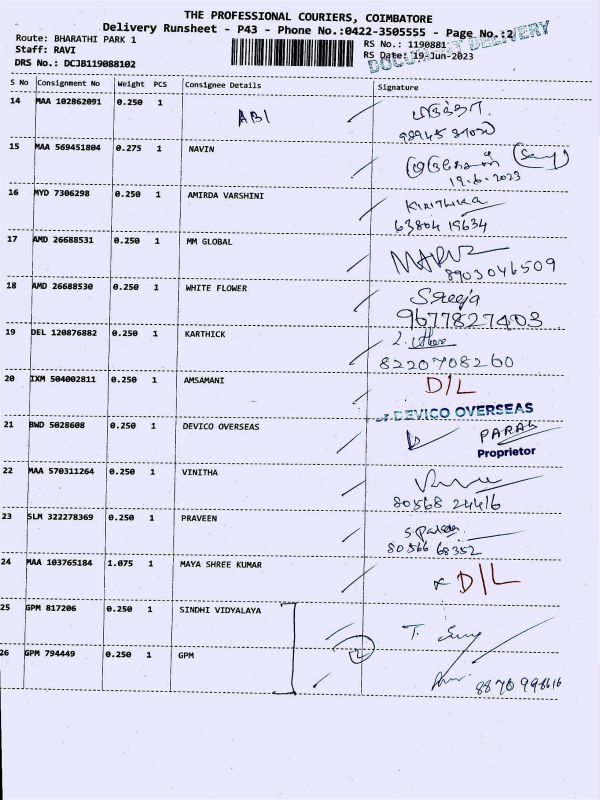 THE PROFESSIONAL COURIERS, COIMBATORE
Delivery Runsheet - P43 - Phone No.:0422-3505555 - Page No.:2
Route: BHARATHI PARK 1
RS No.: 1190881
DOCUMENT DELIVERY
Staff: RAVI
RS Date: 19-Jun-2023
DRS No.: DCJB119088102
S No Consignment No Weight PCS Consignee Details Signature
14 MAA 102862091 0.250 1 ABI
98945
15 MAA 569451804 0.275 1 NAVIN
19.6.2023
16 MYD 7306298 0.250 1 AMIRDA VARSHINI KIRITHIKA
63804 19634
17 AMD 26688531 0.250 1 MM GLOBAL
8903046509
18 AMD 26688530 0.250 1 WHITE FLOWER Sreeja
9677827403
19 DEL 120876882 0.250 1 KARTHICK
8220708260
20 IXM 504002811 0.250 1 AMSAMANI D/L
DEVICO OVERSEAS
21 BWD 5028608 0.250 1 DEVICO OVERSEAS PARAG
Proprietor
22 MAA 570311264 0.250 1 VINITHA
80568 24416
23 SLM 322278369 0.250 1 PRAVEEN
80566 68352
24 MAA 103765184 1.075 1 MAYA SHREE KUMAR D/L
25 GPM 817206 0.250 1 SINDHI VIDYALAYA
2
26 GPM 794449 0.250 1 GPM
8870998616